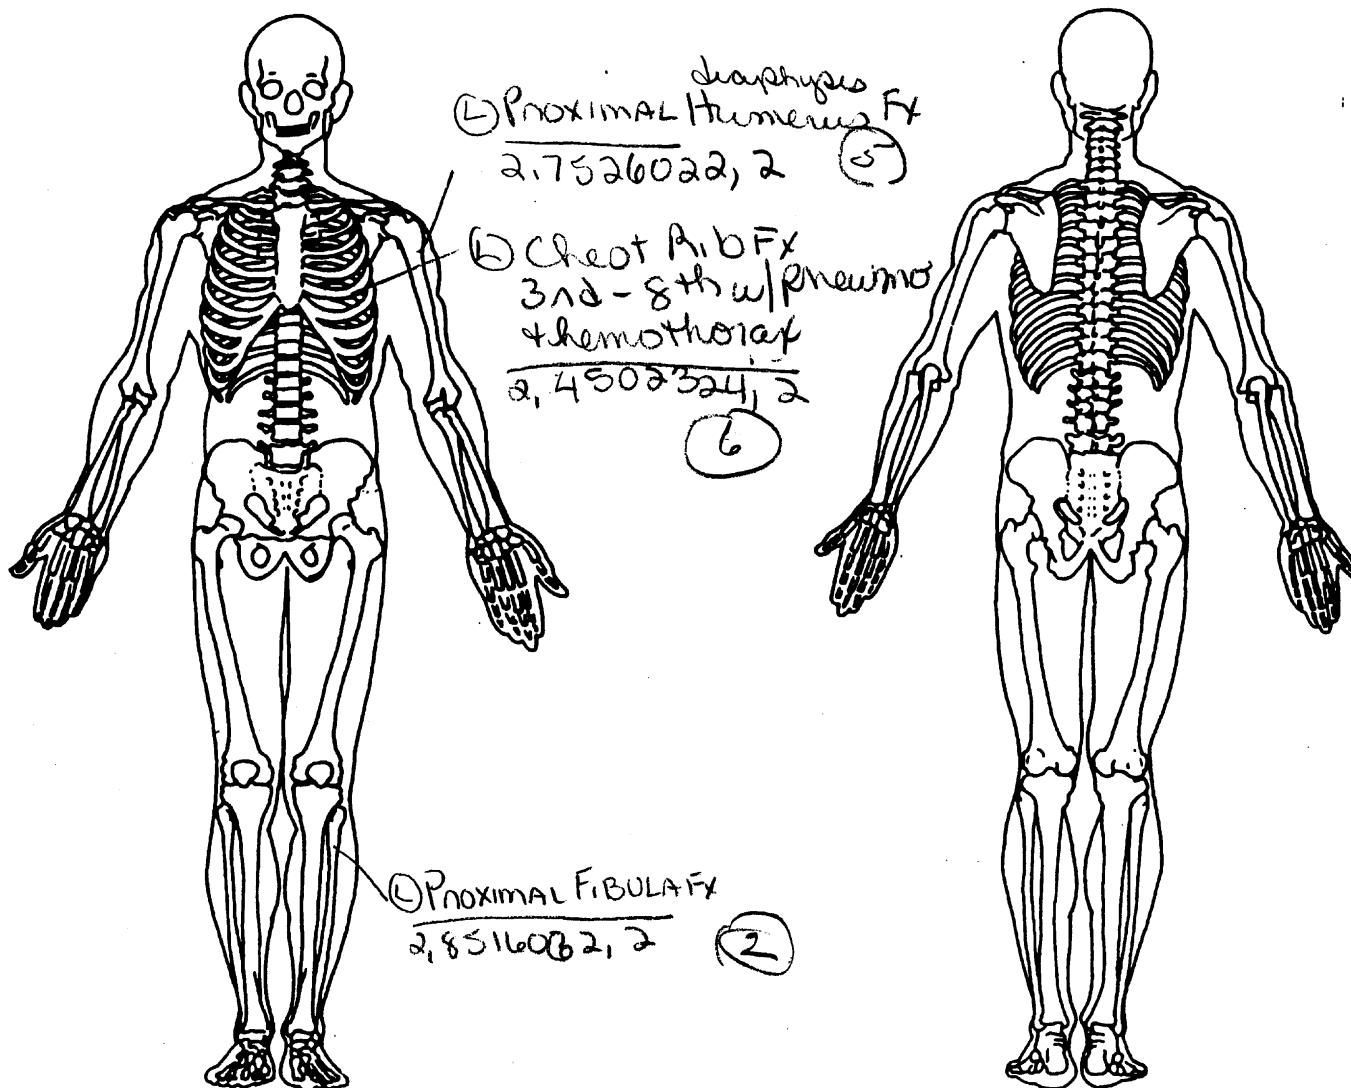 diaphysis
Ⓛ Proximal Humerus Fx
2,7526022, 2
5
Ⓛ Chest Rib Fx
3rd - 8th w/ pneumo
+ hemothorax
2, 4502324, 2
6
Ⓛ Proximal Fibula Fx
2,8516062, 2
2